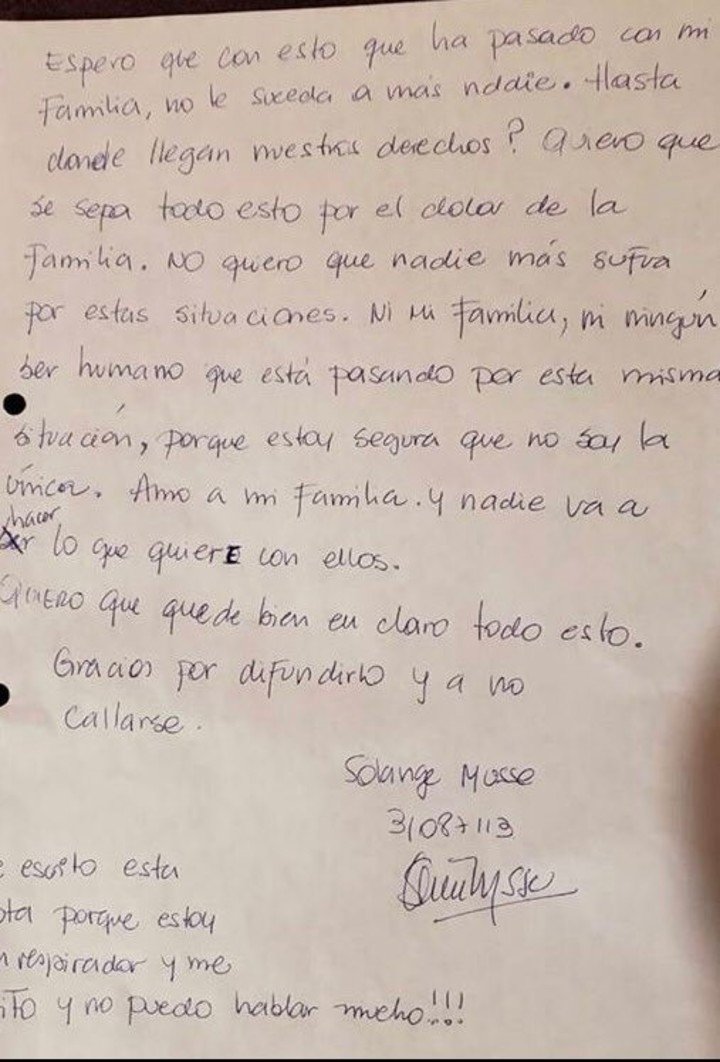 Espero que con esto que ha pasado con mi
Familia, no le suceda a más nadie. Hasta
donde llegan nuestros derechos? Quiero que
se sepa todo esto por el dolor de la
Familia. NO quiero que nadie más sufra
por estas situaciones. Ni mi Familia, ni ningún
ser humano que está pasando por esta misma
situación, porque estoy segura que no soy la
única. Amo a mi Familia. y nadie va a
hacer
lo que quierE con ellos.
QUIERO que quede bien en claro todo esto.
Gracias por difundirlo y a no
callarse.
Solange Musse
31087113
escrito esta
porque estoy
respirador y me
y no puedo hablar mucho!!!